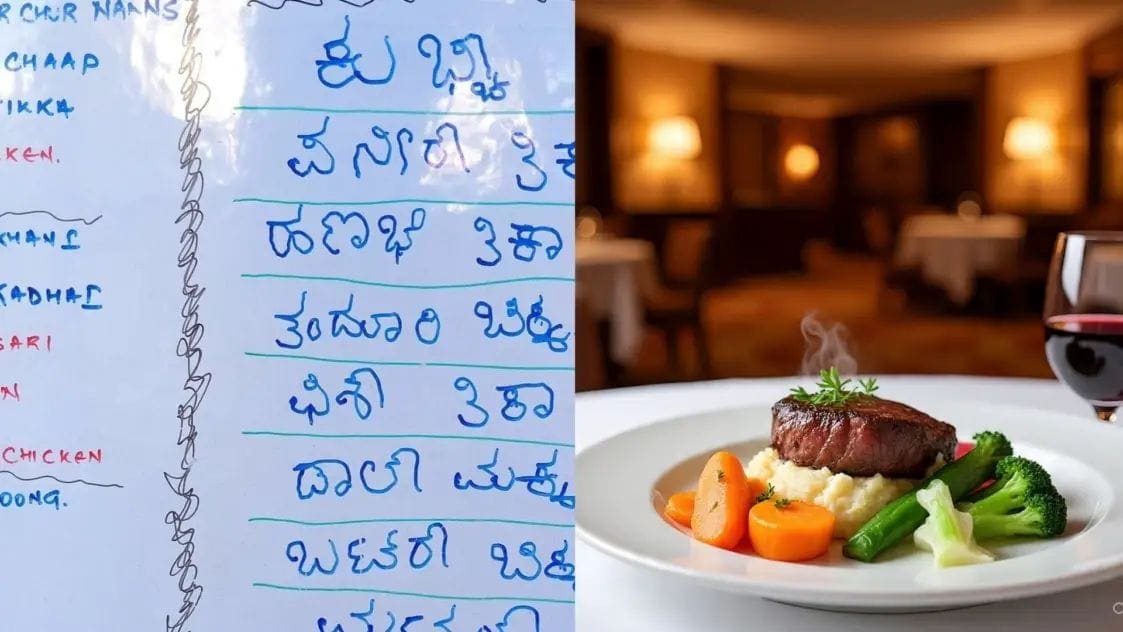 R CHUR NAANS
CHAAP
TIKKA
KEN.
KHANI
KADHAI
SARI
N
CHICKEN
OONG.
ಕು
ಪನೀರ್ ತಿಕ
ಹಣಭೆ ತಿಕಾ
ತಂದೂರಿ ಚಿಕ್ಕ
ಫಿಶ್ ತಿಕಾ
ದಾಲ್ ಮಕ್ಕ
ಬಟರ್ ಚಿಕ